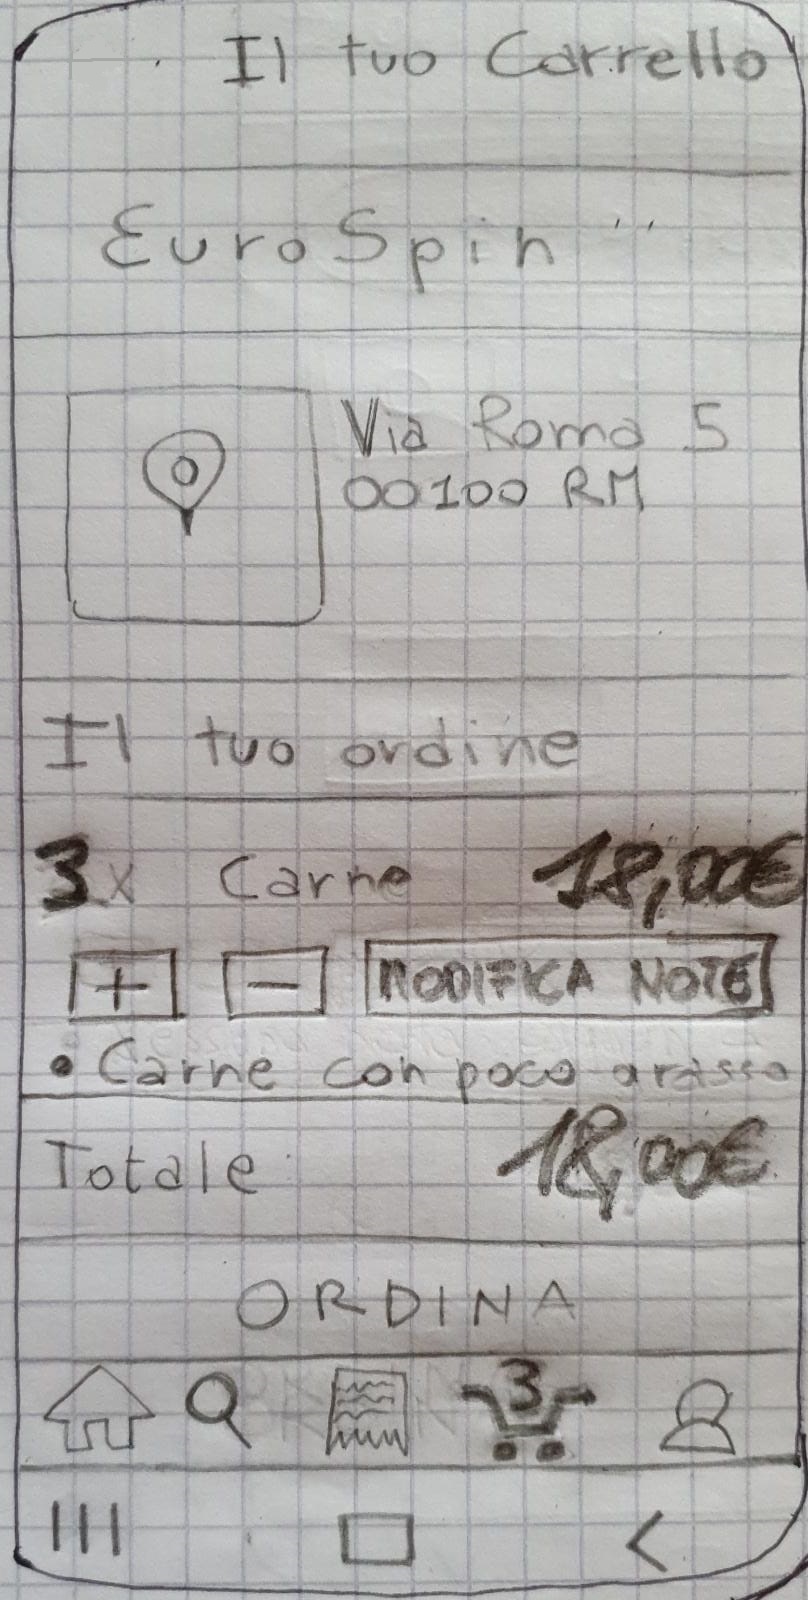 Il tuo Carrello
EuroSpin
Via Roma 5
00100 RM
Il tuo ordine
3x Carne 18,00€
+ - MODIFICA NOTE
• Carne con poco grasso
Totale: 18,00€
ORDINA
3